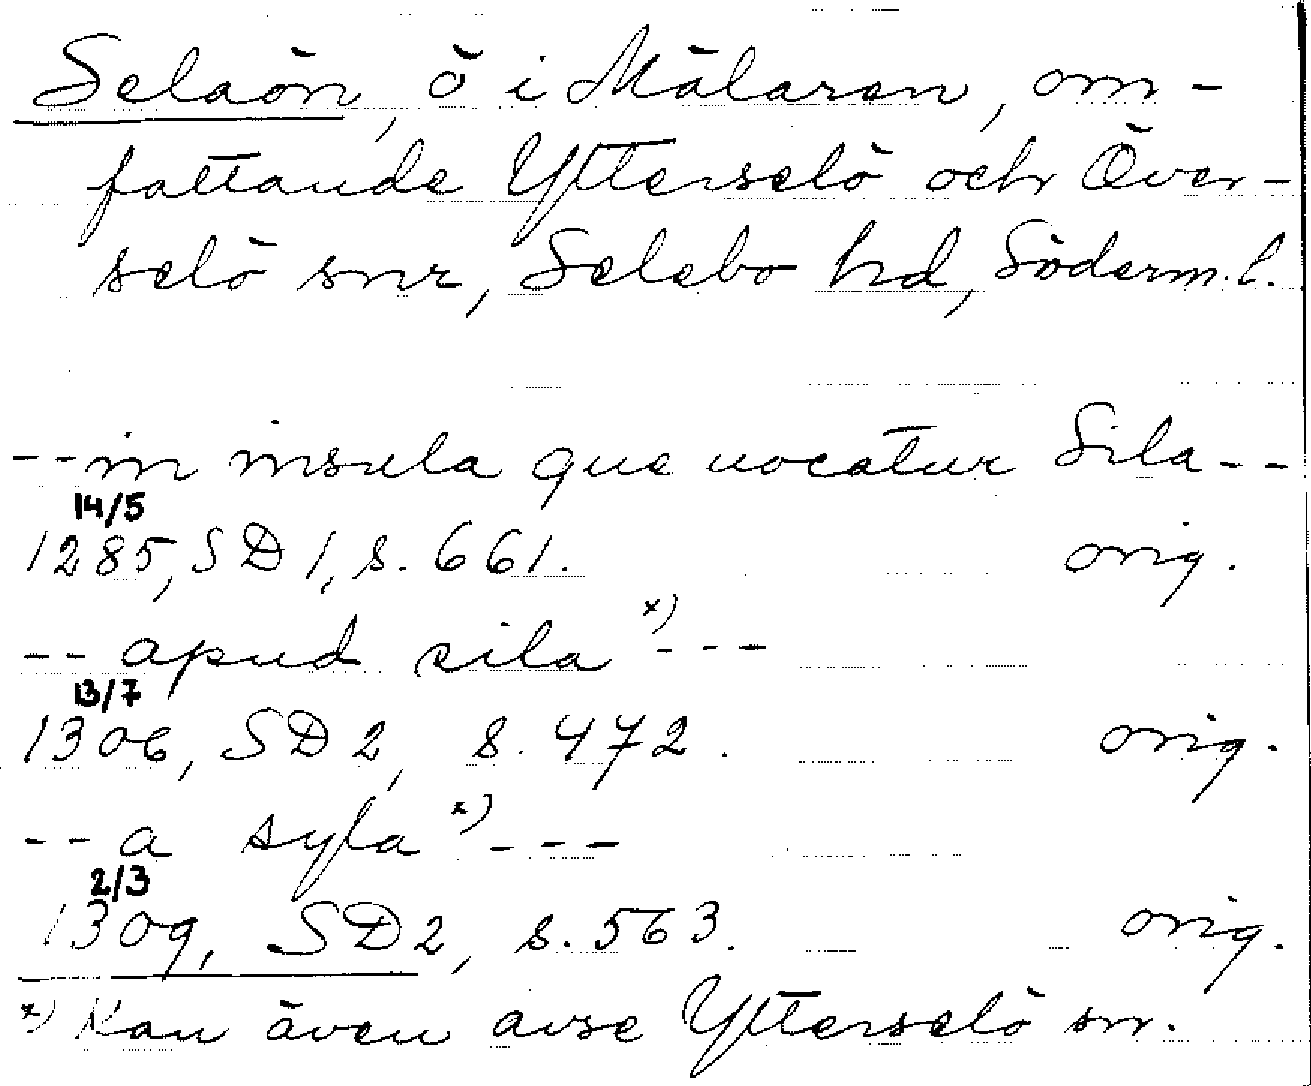 Selaön, ö i Mälaren, om-
fattande Ytterselö och Över-
selö snr, Selebo hd, Söderm. l.
--in insula que uocatur Sila--
14/5
1285, SD 1, s. 661. orig.
--apud sila x)---
13/7
1306, SD 2, s. 472. orig.
--a syla x)---
2/3
1309, SD 2, s. 563. orig.
x) Kan även avse Ytterselö sn.